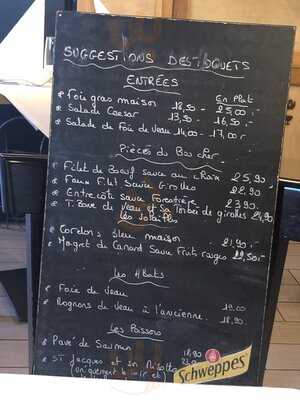 SUGGESTIONS DES TOQUETS
ENTRÉES
En Plat
* Foie gras maison 18,90 - 25,00
* Salade Caesar 13,90 - 16,90
* Salade de Foie de Veau 14,00 - 17,00
Pièces du Boucher
* Filet de Boeuf sauce au choix 25,90
* Faux Filet Sauce Girolles 22,90
* Entrecôte sauce Forestière 23,90
* T. Bone de Veau et Sa Tombée de girolles 24,90
Les Volailles
* Cordons bleu maison 21,90
* Magret de Canard Sauce Fruits rouges 22,50
Les Abats
* Foie de Veau 19,00
* Rognons de Veau à l'ancienne. 18,90
Les Poissons
* Pavé de Saumon 18,90
* St Jacques et son Risotto
(Uniquement le soir et
Schweppes